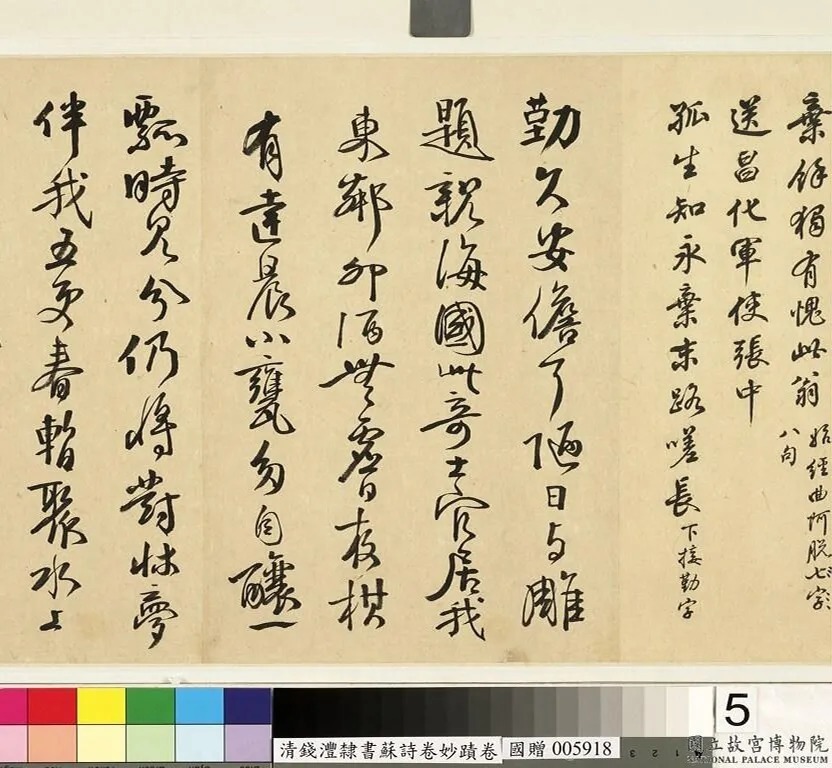 棄餘獨有愧此翁
始經曲阿脱七字
八句
送昌化軍使張中
孤生知永棄末路嗟長
下接勤字
勤久安儋耳陋日与雕
題親海國此奇士官居我
東鄰卯酒無虛日夜棋
有達晨小甕多自釀一
瓢時見分仍將對牀夢
伴我五更春暫聚水上
5
清錢灃隸書蘇詩卷妙蹟卷 國贈 005918
國立故宮博物院
NATIONAL PALACE MUSEUM